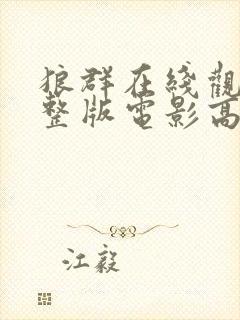 狼群在綫觀
整版電影高
江毅